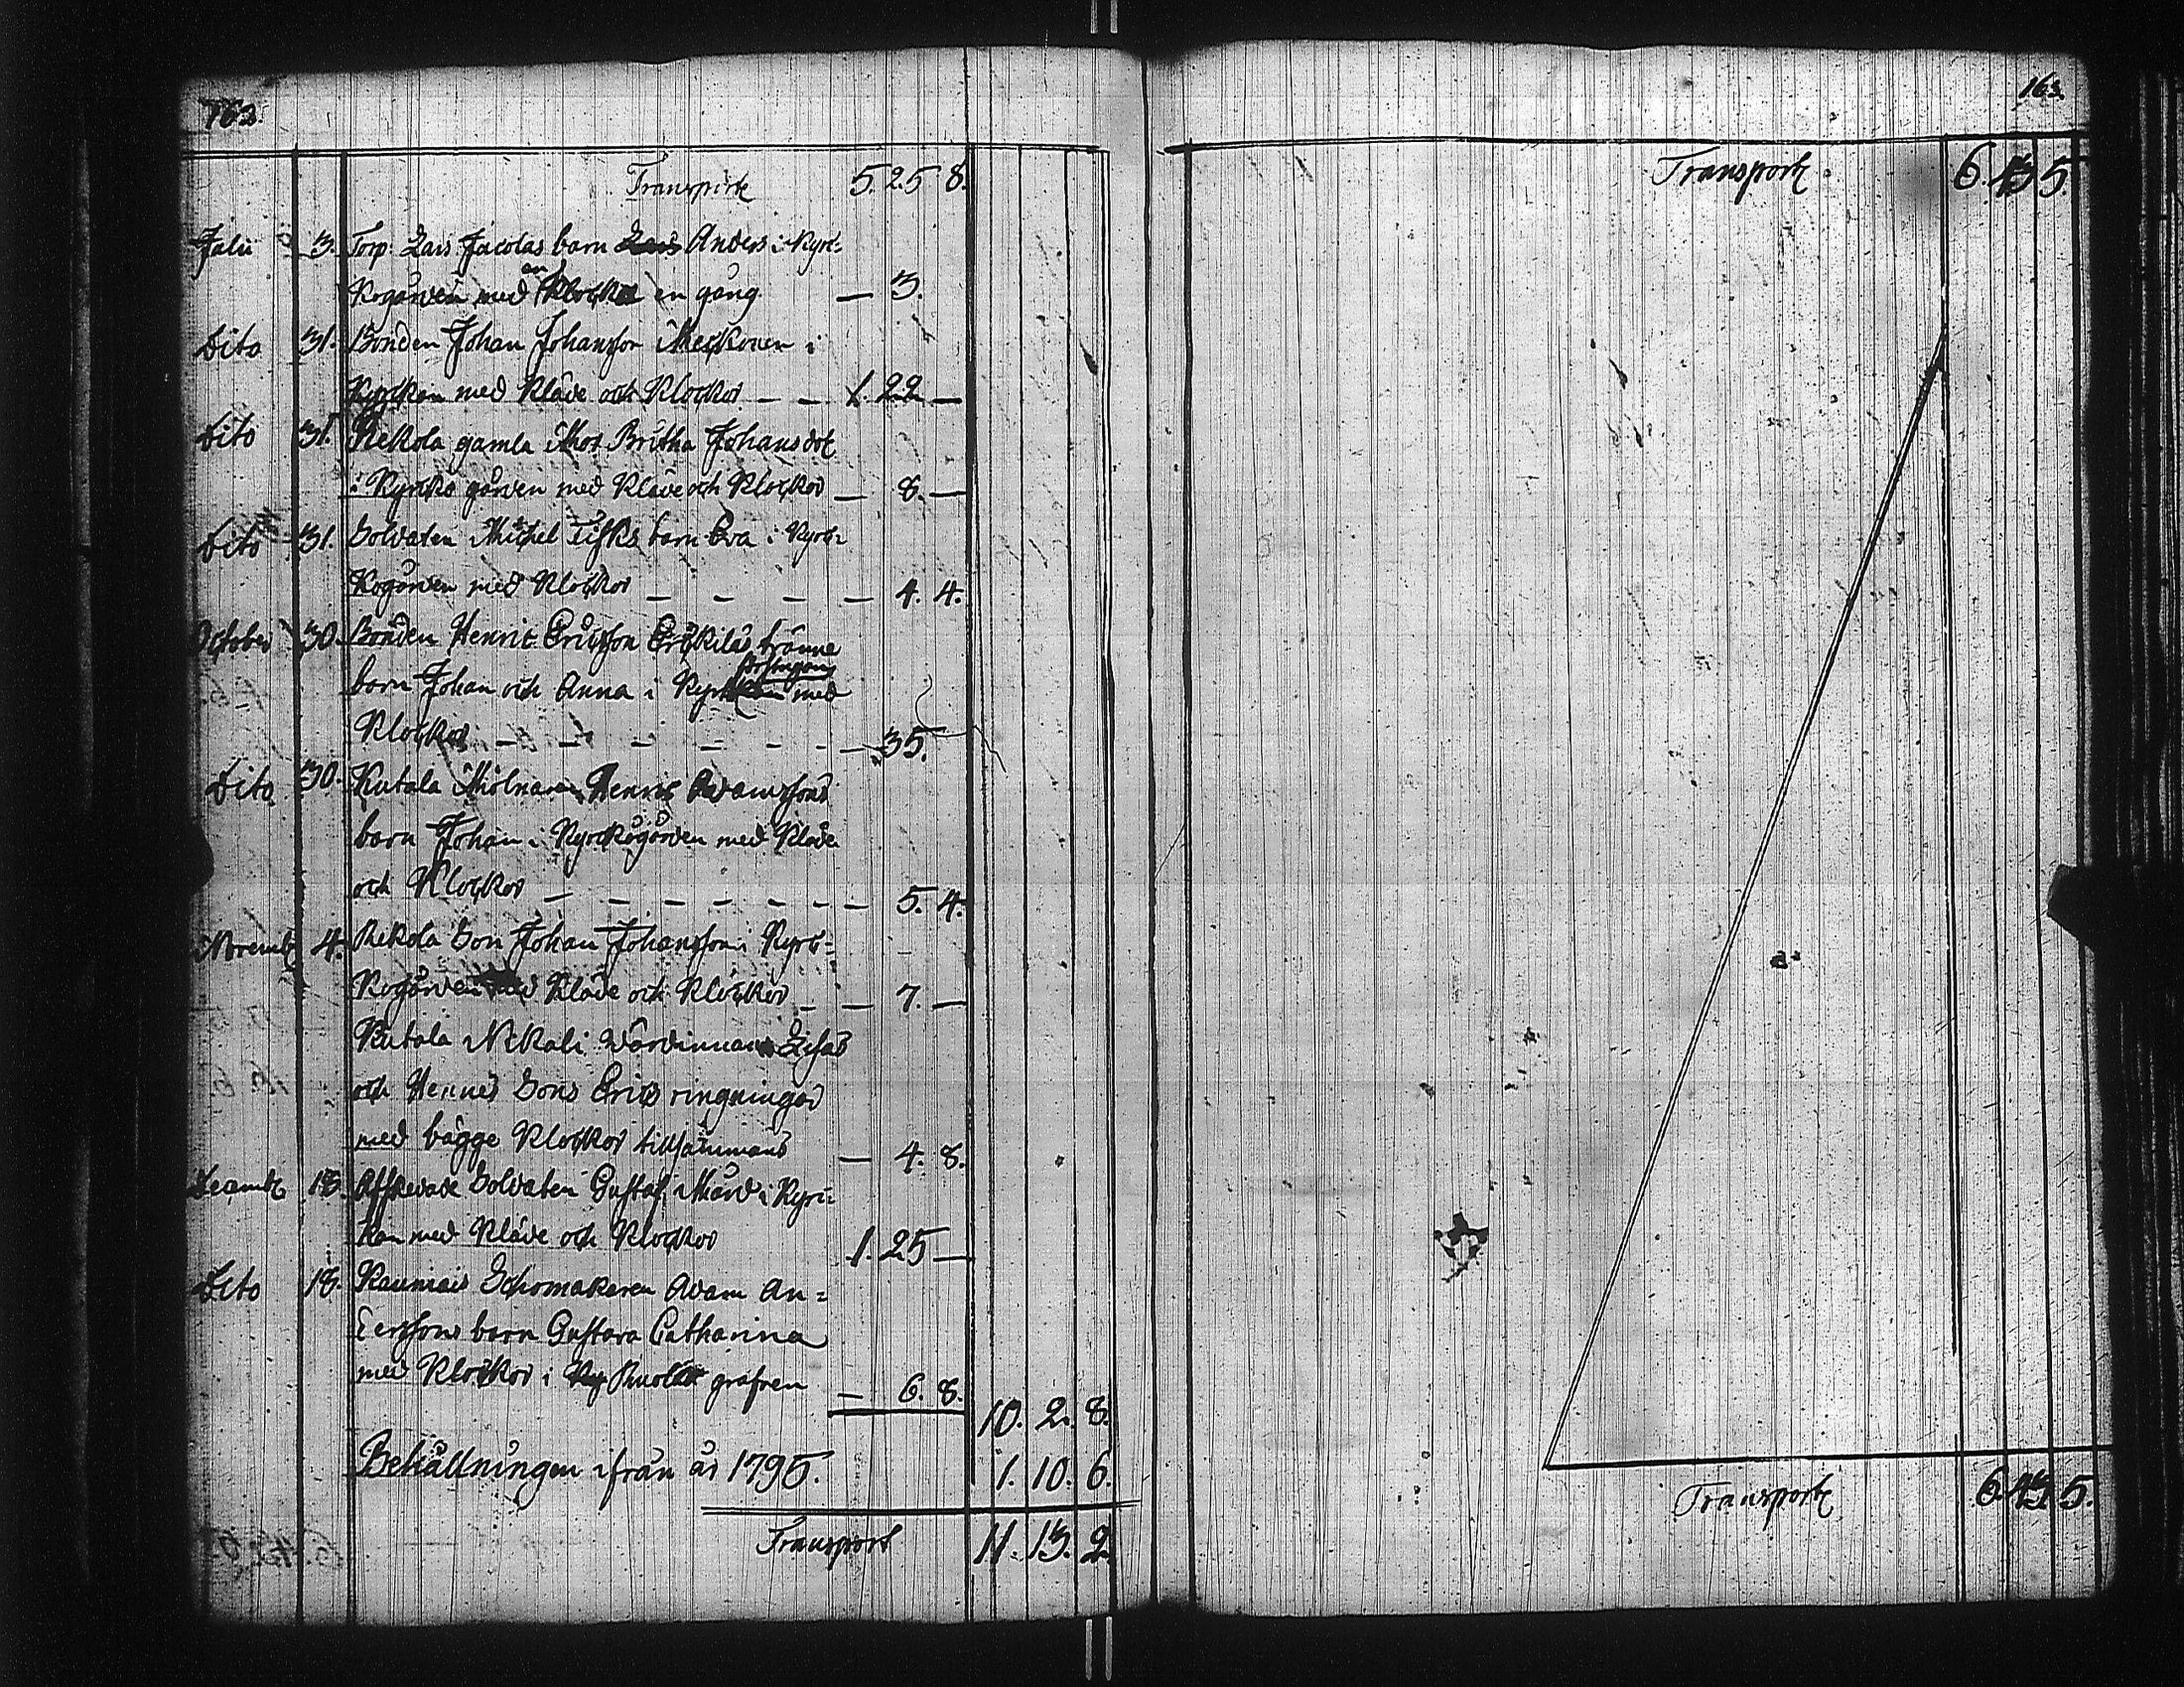 162.
Transport 5. 25 8.
Julii 3. Torp. Lars Jacolas barn Anders i Kyrc-
kogården med en Klocka en gång — 3.
Dito 31. Bonden Johan Johansson Meckonen i
Kyrckan med Kläde och Klockor — — 1. 22 —
Dito 31. Rekola gamla Mor Britha Johansdot
i Kyrcko gården med Kläde och Klockor — 8. —
Dito 31. Soldaten Michel Tisks barn Eva i Kyrc-
kogården med Klockor — — — — 4. 4.
October 30. Bonden Henric Ericsson Erckiläs tvänne
barn Johan och Anna i med
Klockor — — — — — — — 35.
Dito 30. Kutala Mölnaren Henric Adamssons
barn Johan i Kyrckogården med Kläde
och Klockor — — — — — — — 5. 4.
Novemb 4. Rekola Son Johan Johansson i Kyrc-
kogården med Kläde och Klockor — — 7. —
Kutala Nikali Värdinnans Lisas
och Hennes Sons Erics ringningar
med bägge Klockor tillsammans — 4. 8.
Decemb 18. Affskedade Soldaten Gustaf Mård i Kyrc-
kan med Kläde och Klockor 1. 25 —
Dito 18. Raumais Schomakaren Adam An-
derssons barn Gustava Catharina
med Klockor i grafven — 6. 8.
10. 2. 8.
Behållningen ifrån år 1795. 1. 10. 6.
Transport 11. 13. 2.
163.
Transport 6. 43 5.
Transport 6. 43 5.